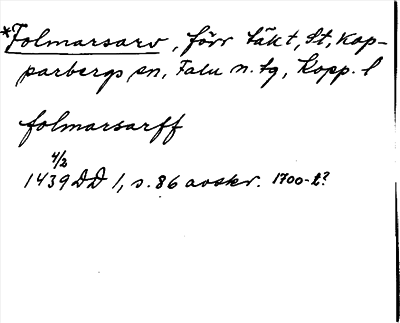 *Folmarsarv, förr täkt, St, Kop-
parbergs sn, Falu n. tg, Kopp. l
folmarsarff
4/3
1439 DD 1, s. 86 avskr. 1700-t?